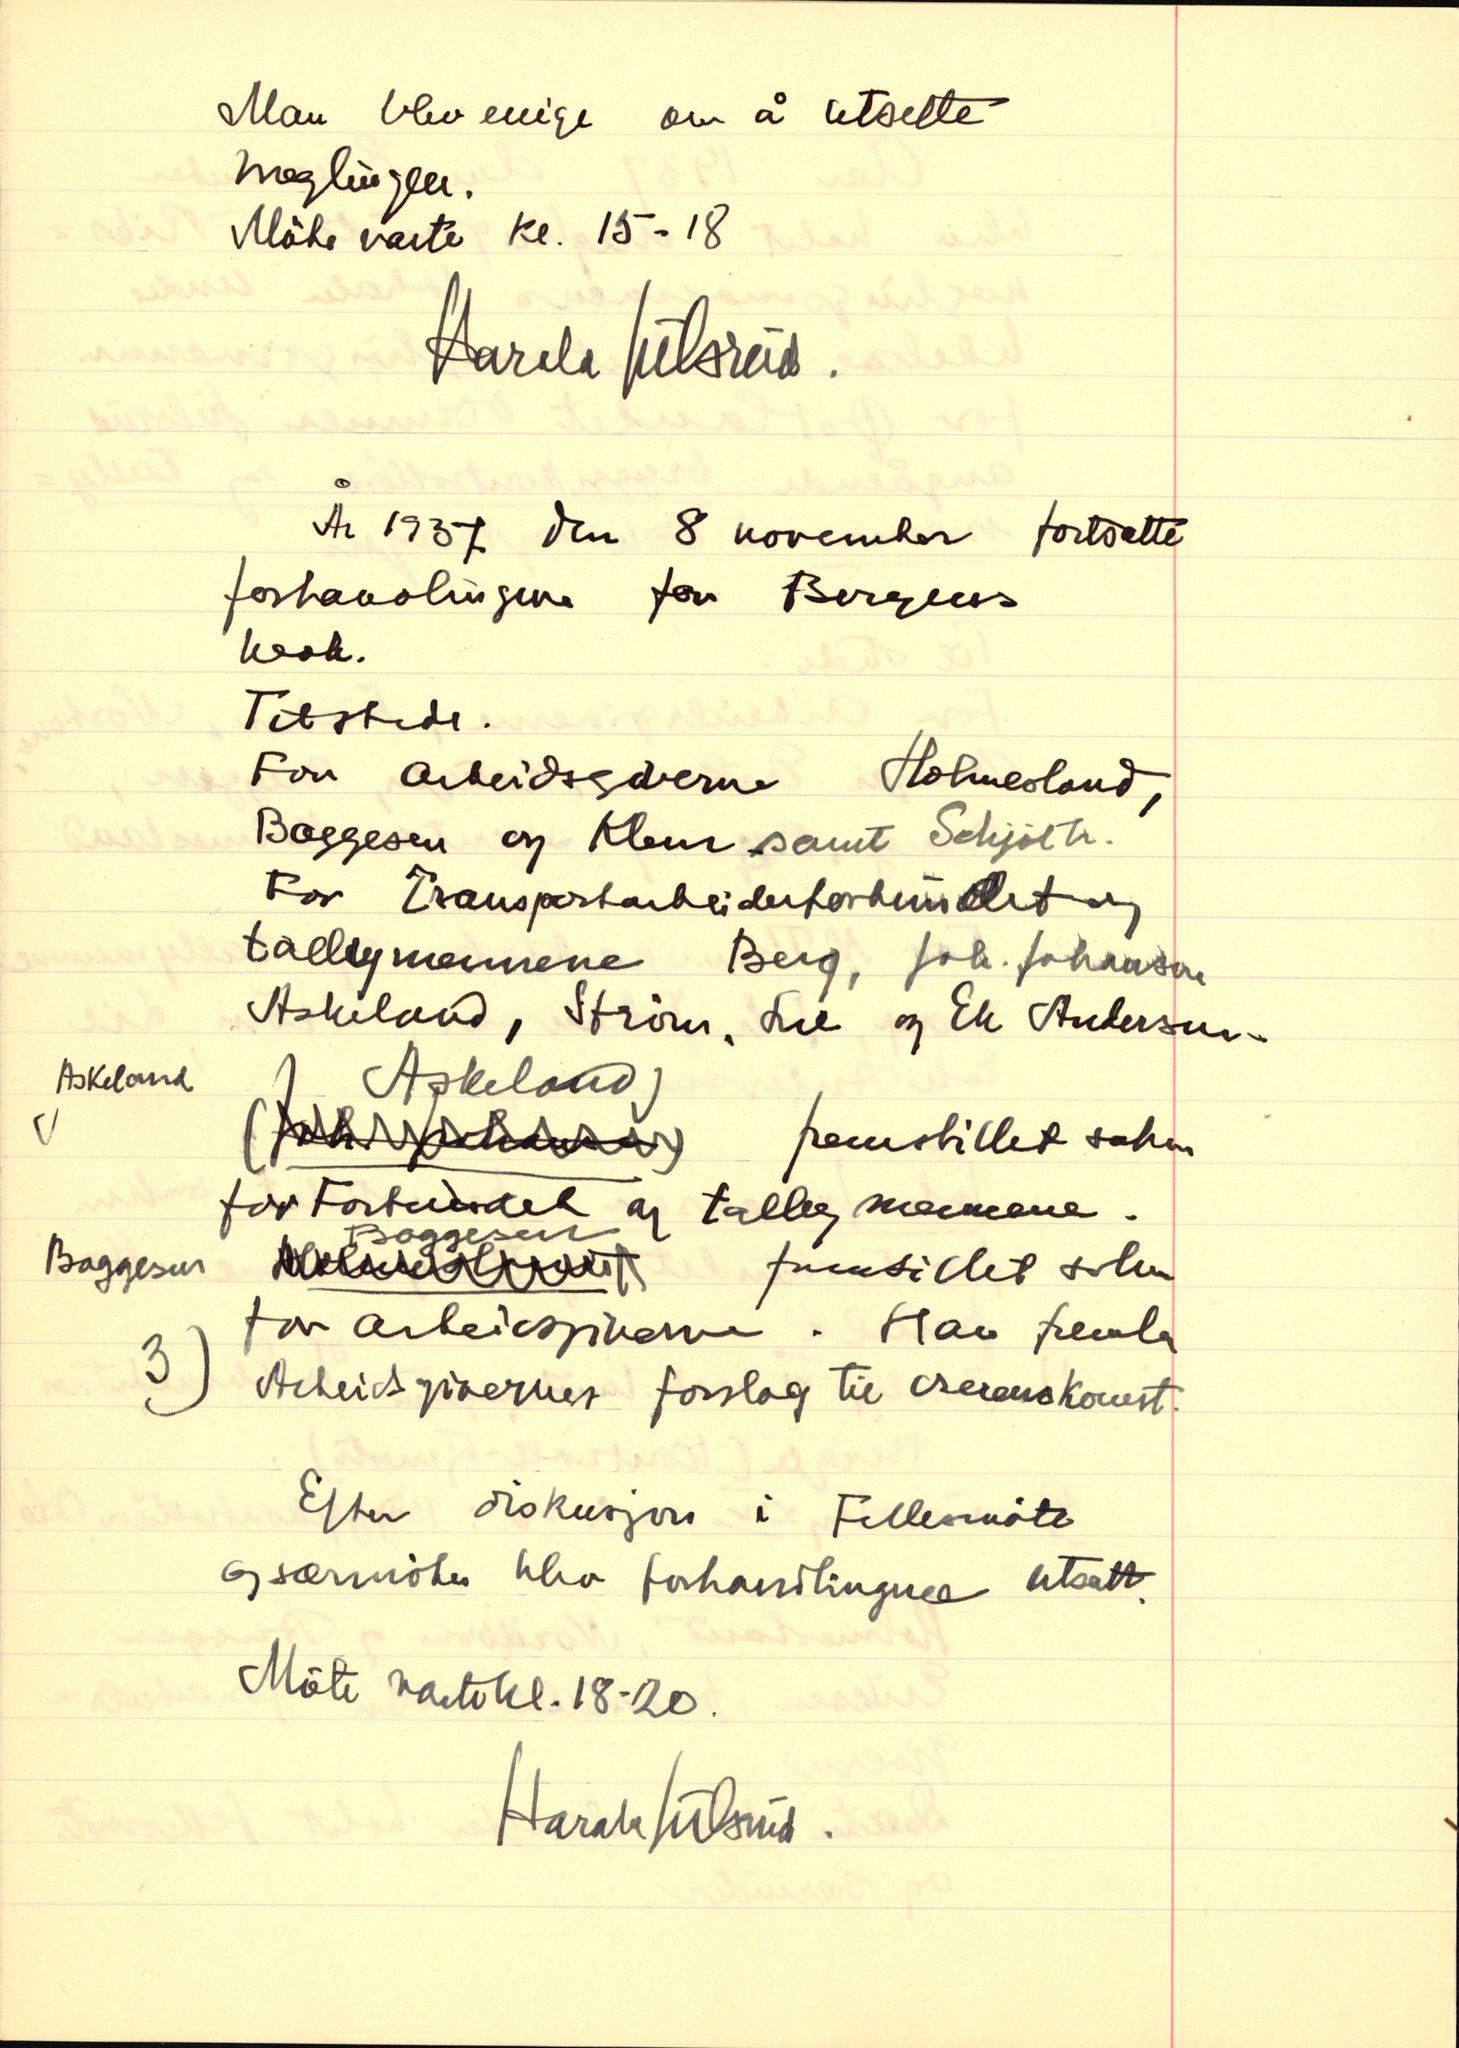 Man blev enige om å utsette
meglingen.
Möte varte kl. 15-18
Harald
År 1937 den 8 november fortsatte
forhandlingene for Bergens
Tilstede.
For arbeidsgiverne Holmesland,
Baggesen og Klem samt Schjöth.
For Transportarbeiderforbundet og
tallymennene Berg, Joh. Johansen
Askeland, Ström, Lie og Ek Andersen.
Askeland
(Askeland)
(Joh. Johansen) fremstillet saken
for Forbundet og tallymennene.
Baggesen
Baggesen
Holmesland fremstillet saken
for arbeidsgiverne. Han fremla
3) Arbeidsgivernes forslag til overenskomst.
Efter diskusjon i Fellesmöte
og særmöter blev forhandlingene utsatt.
Möte varte kl. 18-20.
Harald